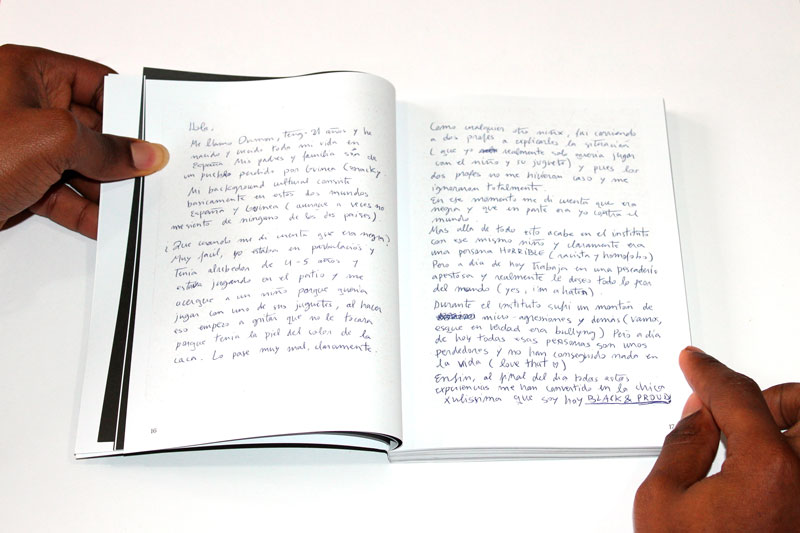 Hola,
Me llamo Oumou, tengo 21 años y he
nacido y vivido toda mi vida en
España. Mis padres y familia son de
un pueblo perdido por Guinea (Conakry.
Mi background cultural consiste
basicamente en estos dos mundos
España y Guinea (aunque a veces no
me siento de ninguno de los dos paises).
¿Que cuando me di cuenta que era negra?
Muy facil, yo estaba en parbularios y
tenia alrededor de 4-5 años y
estaba jugando en el patio y me
acerque a un niño porque queria
jugar con uno de sus juguetes, al hacer
eso empezo a gritar que no le tocara
porque tenia la piel del color de la
caca. Lo pase muy mal, claramente.
16
Como cualquier otro niñx, fui corriendo
a dos profes a explicarles la situacion
(que yo realmente solo queria jugar
con el niño y su juguete) y pues los
dos profes no me hicieron caso y me
ignoraron totalmente.
En ese momento me di cuenta que era
negra y que en parte era yo contra el
mundo.
Mas alla de todo esto acabe en el instituto
con ese mismo niño y claramente era
una persona HORRIBLE (racista y homofobo)
Pero a dia de hoy trabaja en una pescaderia
apestosa y realmente le deseo todo lo peor
del mundo (yes, i'm a hater).
Durante el instituto sufri un monton de
micro-agresiones y demas (vamos,
esque en verdad era bullyng) Pero a dia
de hoy todas esas personas son unos
perdedores y no han conseguido nada en
la vida (love that ♡)
En fin, al final del dia todas estas
experiencias me han convertido en la chica
xulissima que soy hoy BLACK & PROUD
17